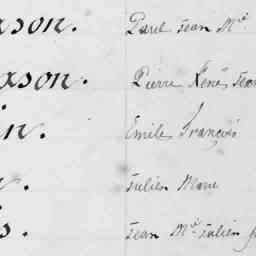 xson. Paul Jean Mie
xson. Pierre René Jean
in. Emile François
. Julien Marie
s. Jean Mie Julien